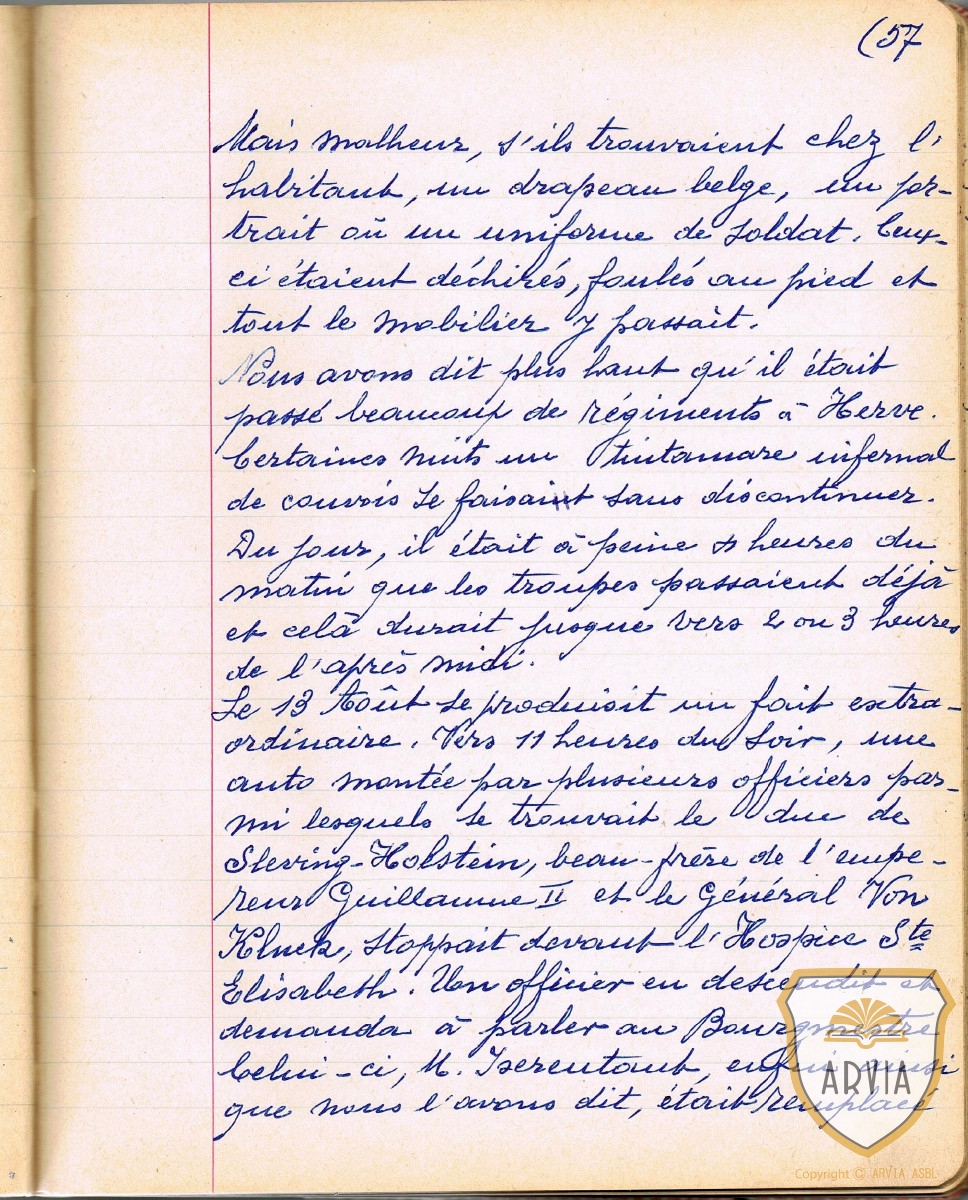 (57
Mais malheur, s'ils trouvaient chez l'
habitant, un drapeau belge, un por-
trait oū un uniforme de soldat. Ceux-
ci étaient déchirés, foulés au pied et
tout le mobilier y passait.
Nous avons dit plus haut qu'il était
passé beaucoup de régiments à Herve.
Certaines nuits un tintamare infernal
de convois se faisaint sans discontinuer.
Du jour, il était à peine 4 heures du
matin que les troupes passaient déjà
et celà durait jusque vers 2 ou 3 heures
de l'après midi.
Le 13 Août se produisit un fait extra-
ordinaire. Vers 11 heures du soir, une
auto montée par plusieurs officiers par-
mi lesquels se trouvait le duc de
Sleving-Holstein, beau-frère de l'empe-
reur Guillaume II et le Général Von
Kluck, stoppait devant l'Hospice Ste
Elisabeth. Un officier en descendit et
demanda à parler au Bourgmestre
Celui-ci, M. Iserentant, enfui ainsi
que nous l'avons dit, était remplacé
ARVIA
Copyright © ARVIA ASBL